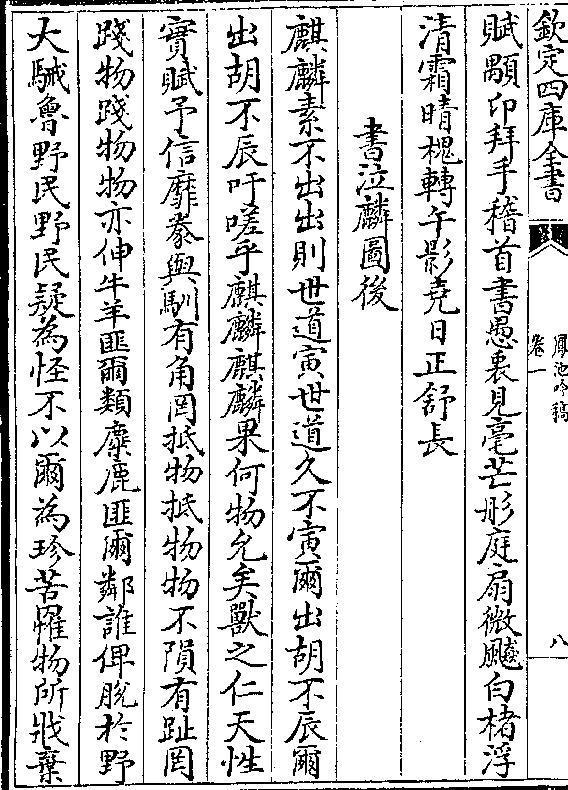 欽定四庫全書
鳳池吟稿
卷一
八
賦顒卬拜手稽首書愚衷見毫芒彤庭扇微飈白楮浮
清霜晴槐轉午影堯日正舒長
書泣麟圖後
麒麟素不出出則世道寅世道久不寅爾出胡不辰爾
出胡不辰吁嗟乎麒麟麒麟果何物允矣獸之仁天性
實賦予信靡豢與馴有角罔抵物抵物物不隕有趾罔
踐物踐物物亦伸牛羊匪爾類麋鹿匪爾鄰誰俾脫於野
大駴魯野民野民疑為怪不以爾為珍苦罹物所戕棄